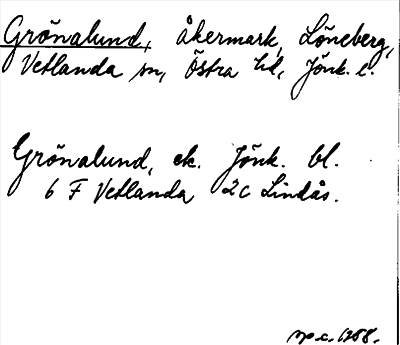 Grönalund, Åkermark, Löneberg,
Vetlanda sn, Östra hd, Jönk. l.
Grönalund, ek. Jönk. bl.
6 F Vetlanda 2c Lindås.
1958.